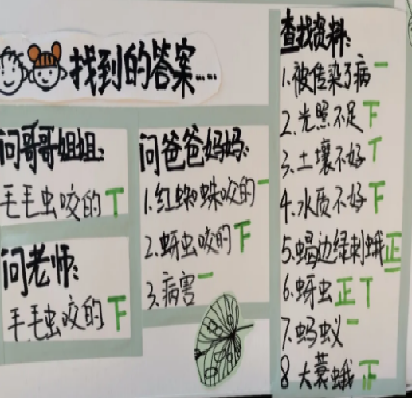 找到的答案.....
问哥哥姐姐:
毛毛虫咬的 T
问老师:
毛毛虫咬的 F
问爸爸妈妈:
1.红蜘蛛咬的 一
2.蚜虫咬的 F
3.病害 一
查找资料:
1.被传染了病 一
2.光照不足 F
3.土壤不好 T
4.水质不好 F
5.蝎边绿刺蛾 正
6.蚜虫 正 T
7.蚂蚁 一
8 大蓑蛾 正